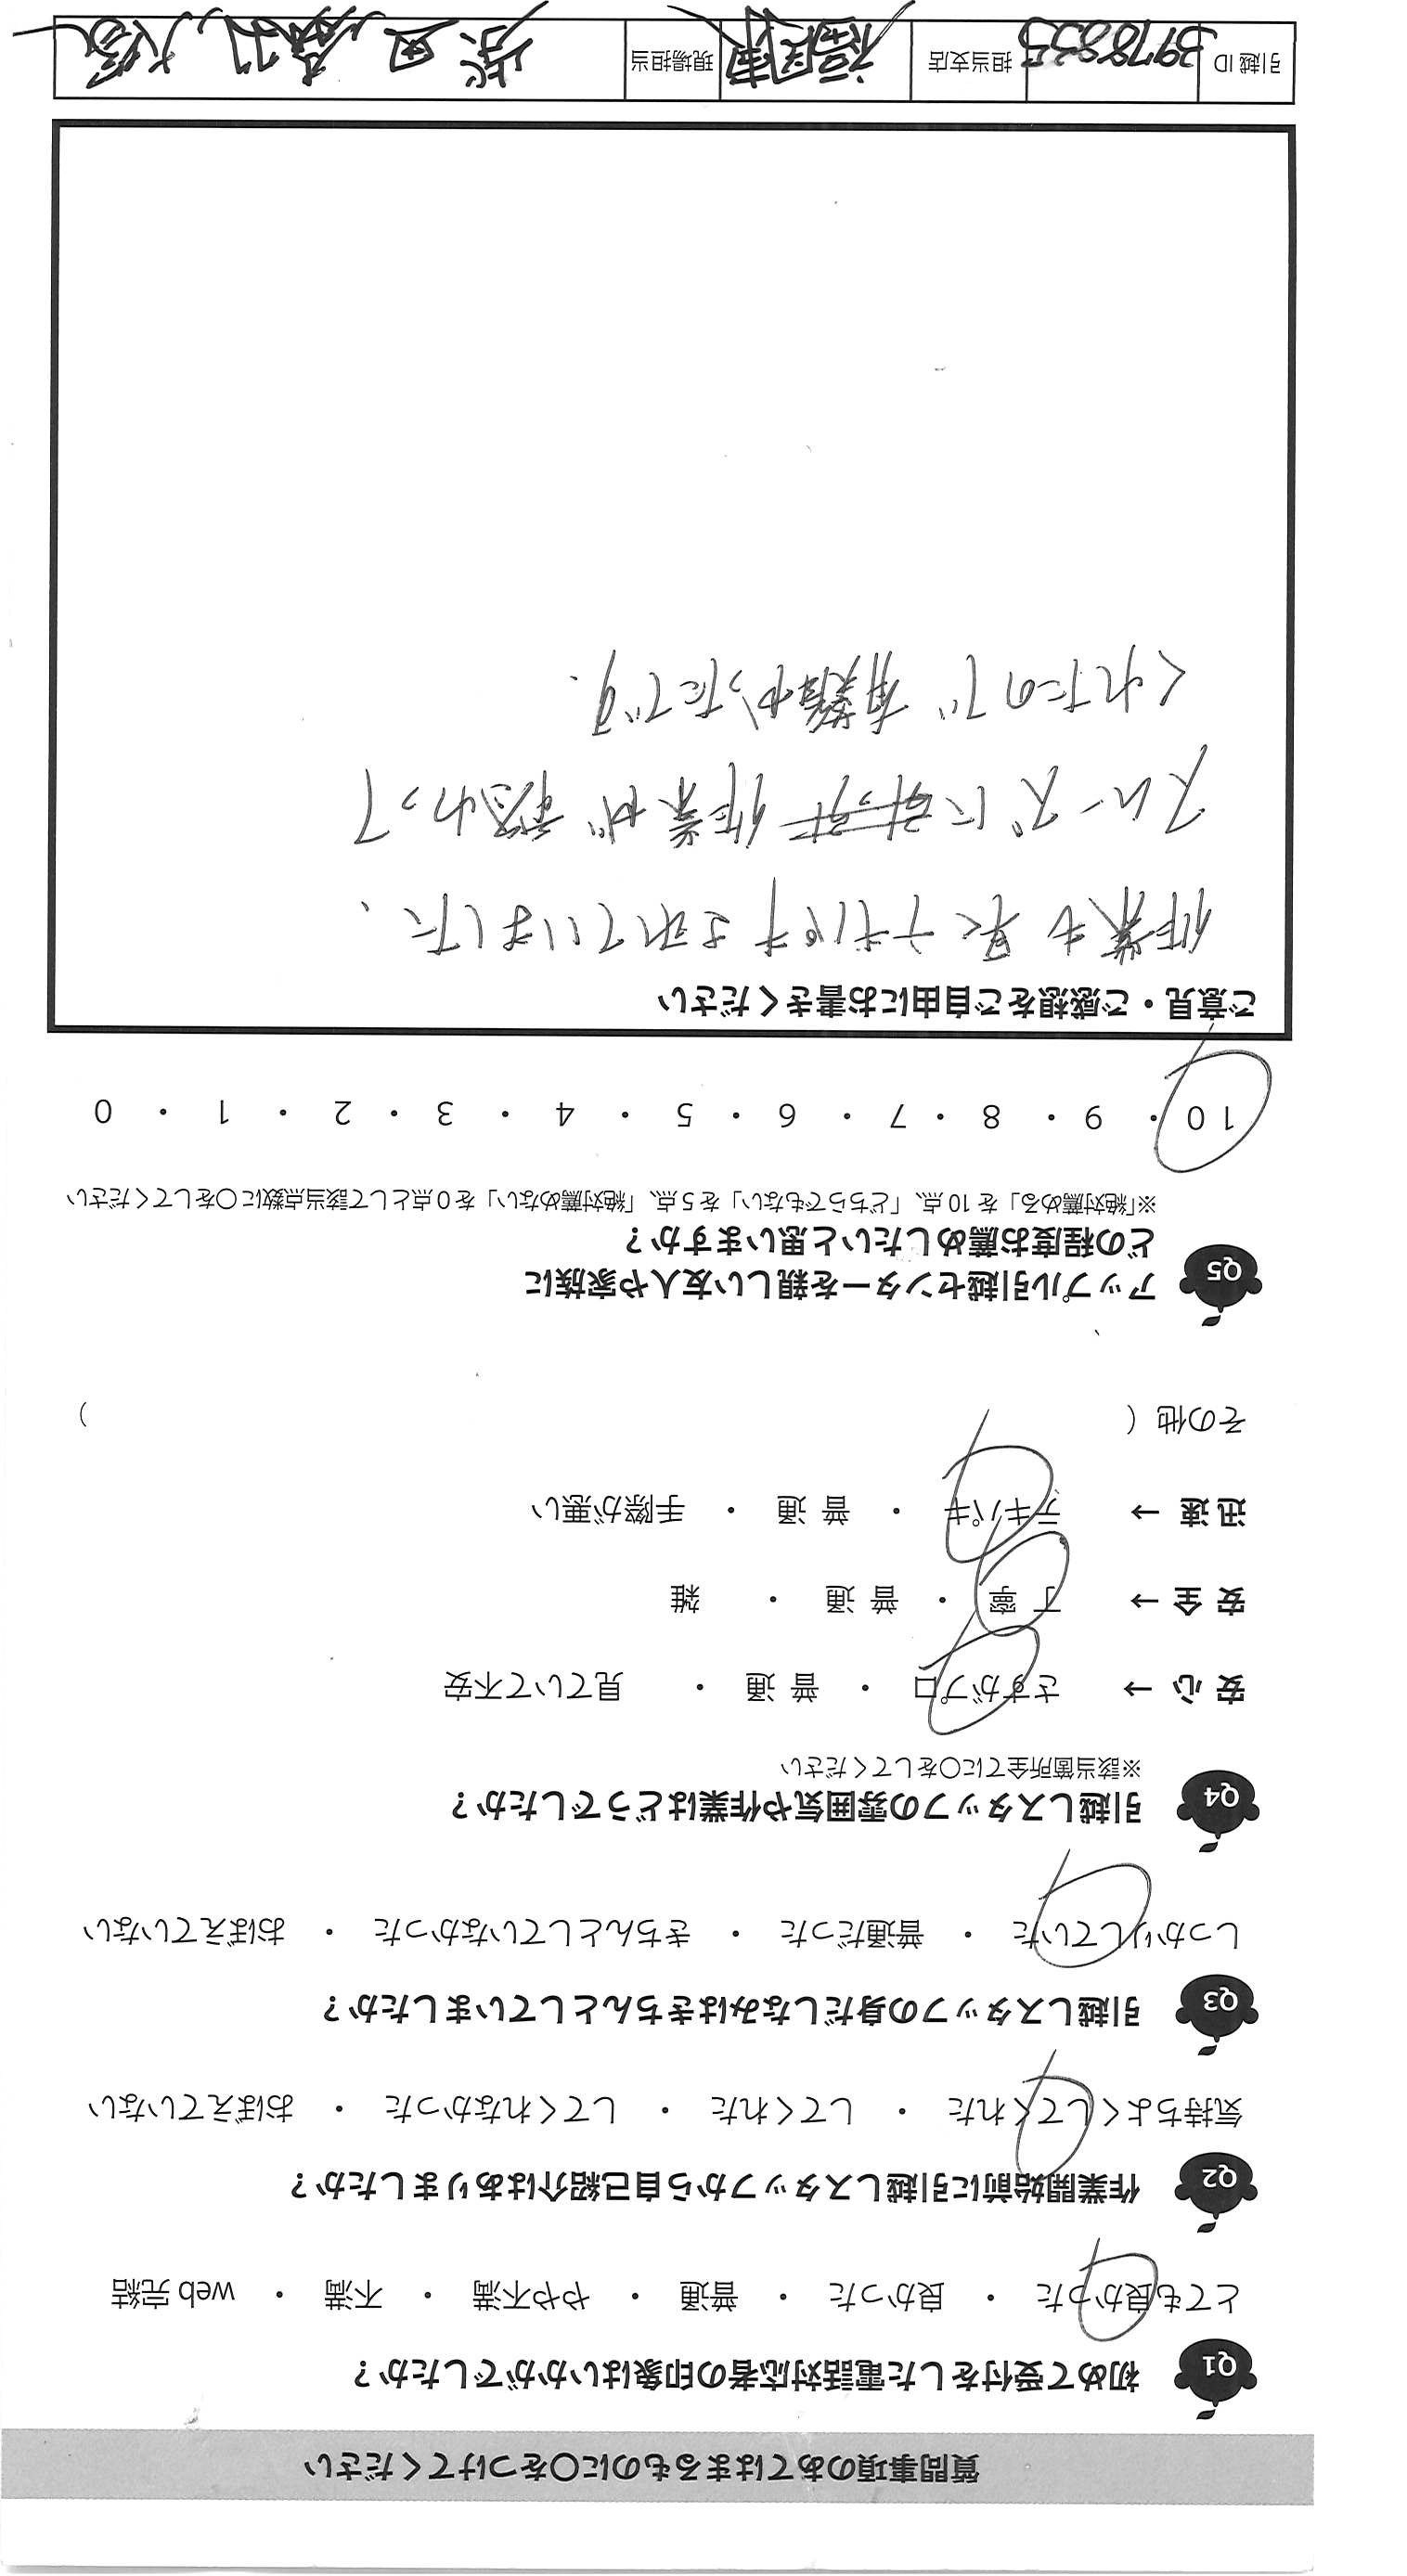 質問事項のあてはまるものに〇をつけてください
Q1 初めて受付をした電話対応者の印象はいかがでしたか？
とても良かった ・ 良かった ・ 普通 ・ やや不満 ・ 不満 ・ web 完結
Q2 作業開始前に引越しスタッフから自己紹介はありましたか？
気持ちよくしてくれた ・ してくれた ・ してくれなかった ・ おぼえていない
Q3 引越しスタッフの身だしなみはきちんとしていましたか？
しっかりしていた ・ 普通だった ・ きちんとしていなかった ・ おぼえていない
Q4 引越しスタッフの雰囲気や作業はどうでしたか？
※該当箇所全てに〇をしてください
安心 → さすがプロ ・ 普通 ・ 見ていて不安
安全 → 丁寧 ・ 普通 ・ 雑
迅速 → テキパキ ・ 普通 ・ 手際が悪い
その他 （ ）
Q5 アップル引越センターを親しい友人や家族に
どの程度お薦めしたいと思いますか？
※「絶対薦める」を10点、「どちらでもない」を5点、「絶対薦めない」を0点として該当点数に〇をしてください
10 ・ 9 ・ 8 ・ 7 ・ 6 ・ 5 ・ 4 ・ 3 ・ 2 ・ 1 ・ 0
ご意見・ご感想をご自由にお書きください
作業も早くテキパキされていました、
スムーズに 作業が終わって
くれたので有難かったです.
引越 ID 3978833 担当支店 福岡東 現場担当